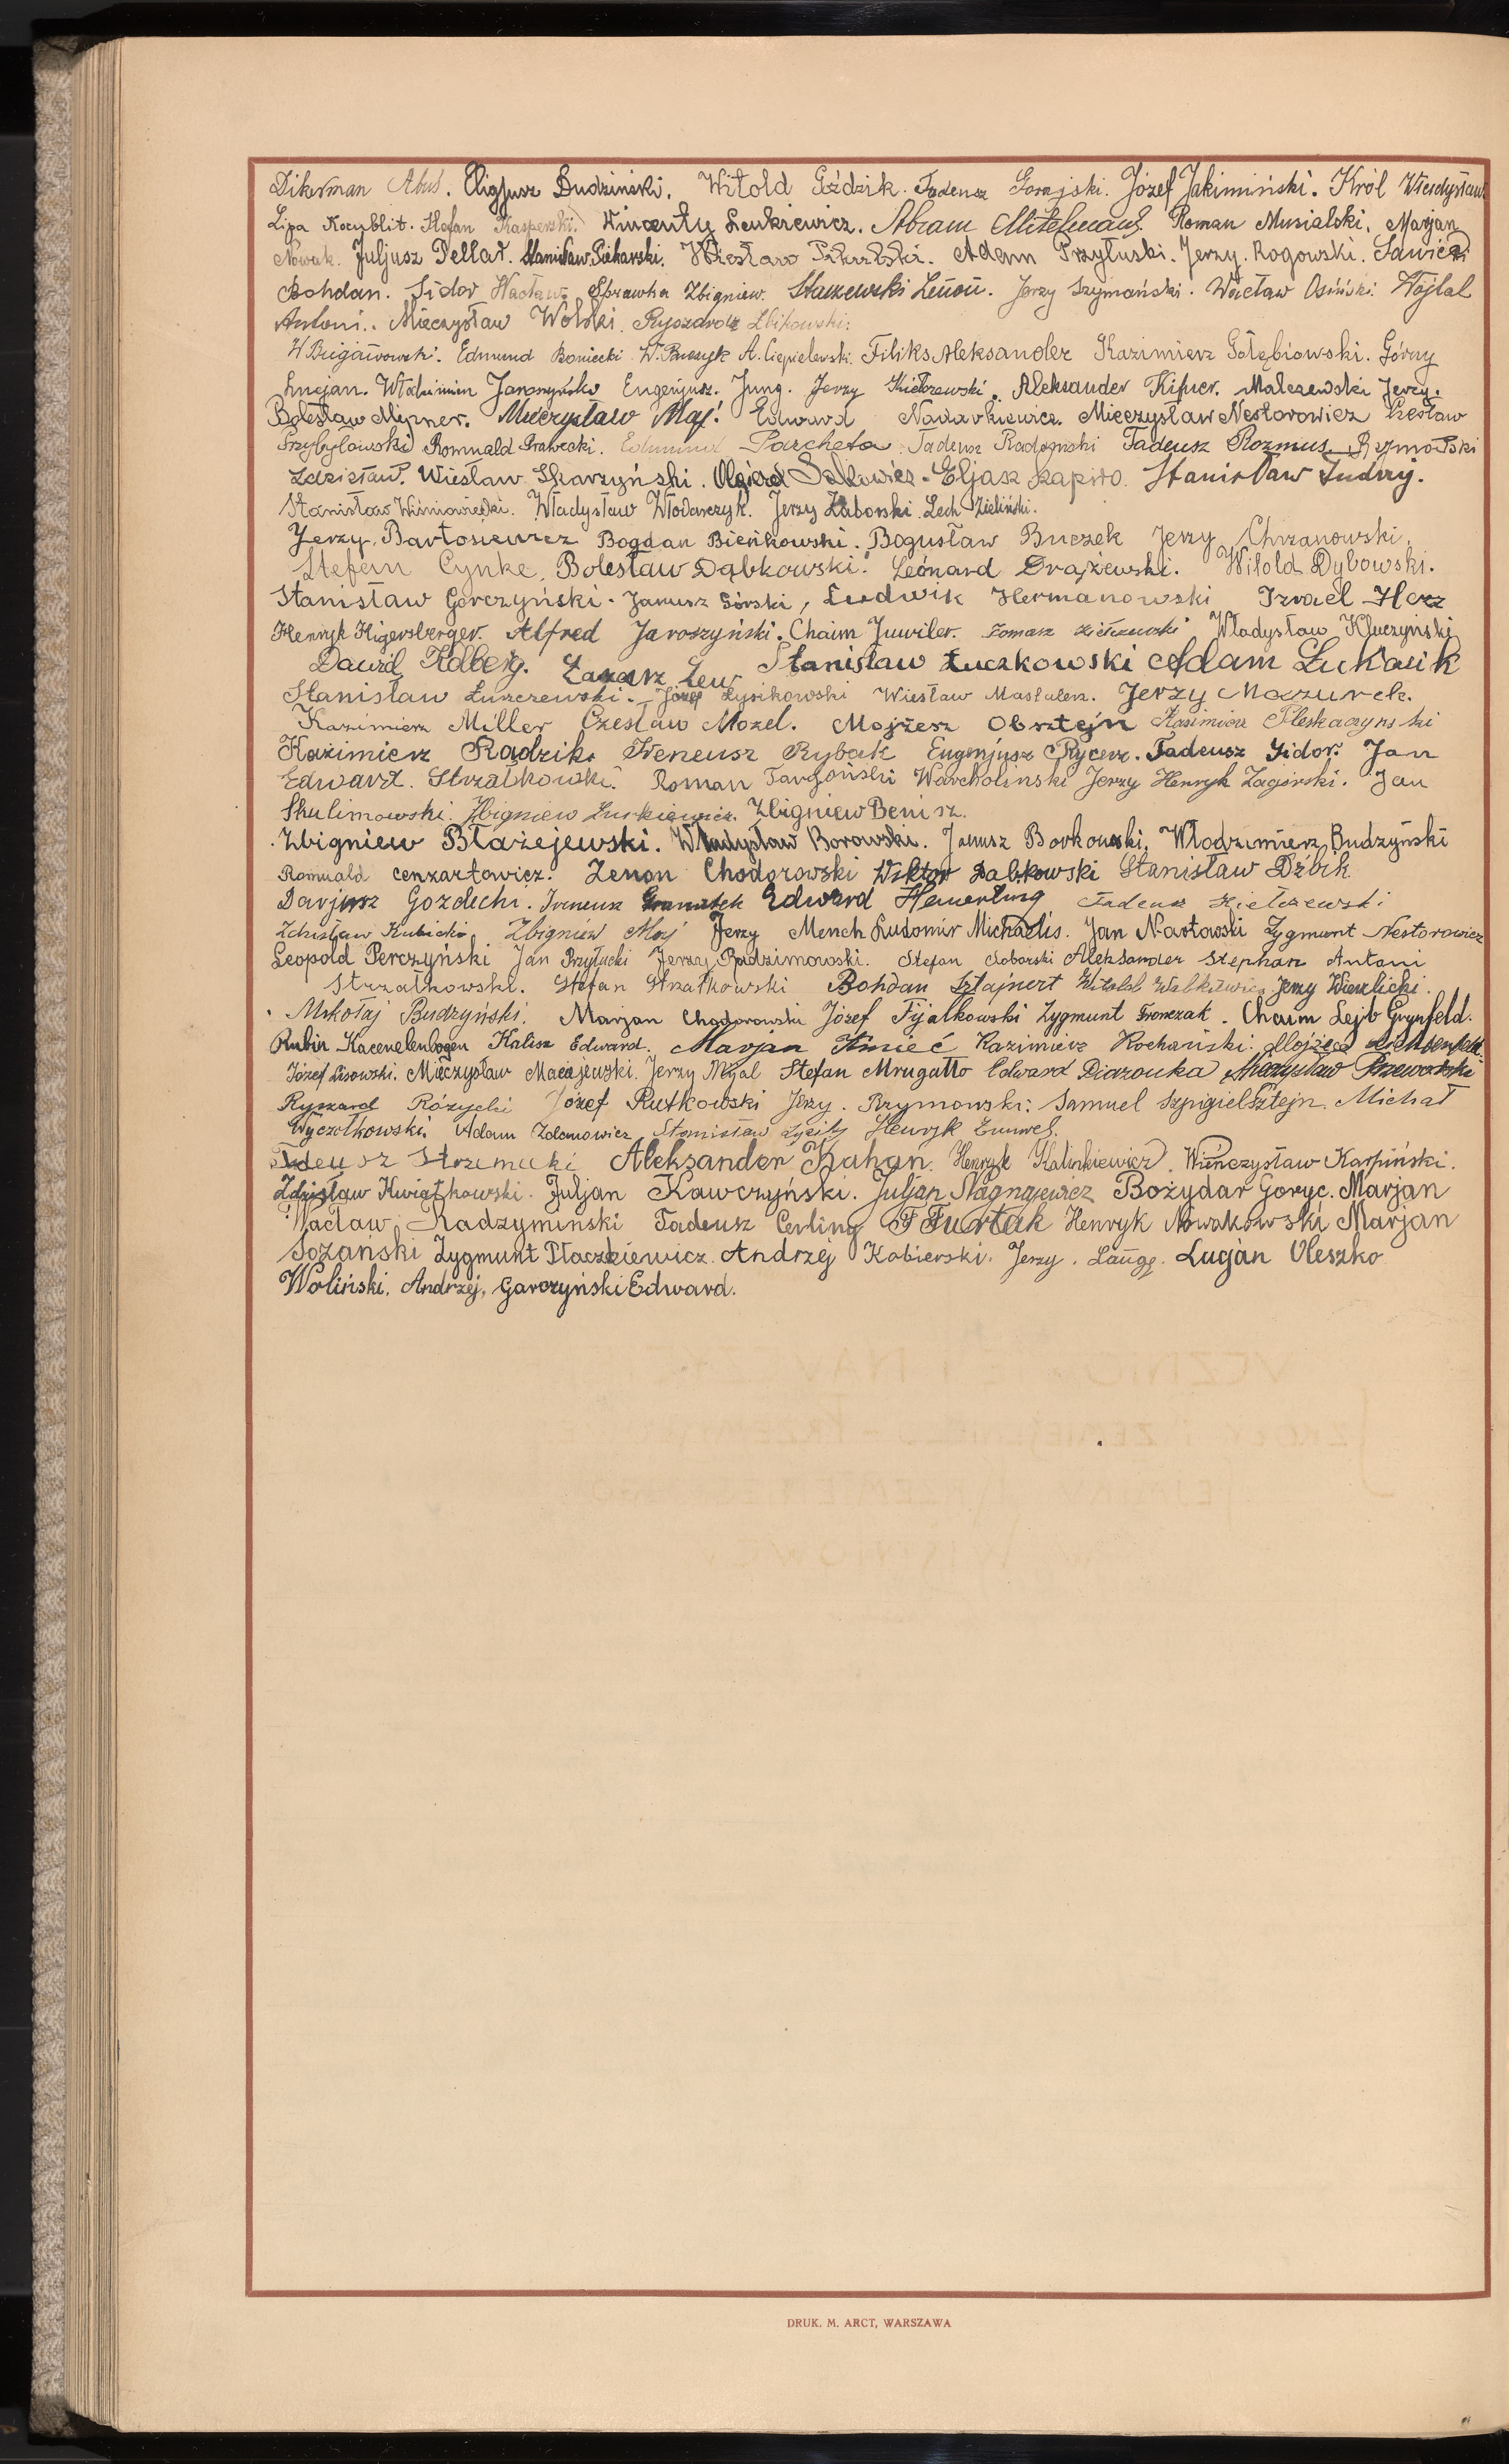 Dikerman Abuś. Eligjusz Budziński. Witold Goździk. Tadeusz Gorajski. Józef Jakimiński. Król Władysław
Lipa Kocyblit. Stefan Kasperski. Wincenty Leukiewicz. Abram Mitelman. Roman Musialski. Marjan
Nowak. Juljusz Pellar. Stanisław Piekarski. Wiesław Adam Przyłuski. Jerzy. Rogowski. Sawicki
Bohdan. Sidor Wacław. Sprawka Zbigniew. Staszewski Zenon. Jerzy Szymański. Wacław Osiński. Wojtal
Antoni.. Mieczysław Wolski. Ryszard Żbikowski.
Edmund Boniecki. A. Ciepielewski. Filiks Aleksander Kazimierz Gołębiowski. Górny
Lucjan. Włodzimierz Jaroszyński Eugenjusz. Jung. Jerzy Kiełczewski. Aleksander Kifner. Maleszewski Jerzy.
Bolesław Mizner. Mieczysław Maj. Edward Nadarkiewicz. Mieczysław Nestorowicz Czesław
Przybyłowski Romuald Prawecki. Edmund Parcheta. Tadeusz Radgoński Tadeusz Rozmus. Rzymowski
Zdzisław. Wiesław Skarżyński. Olgierd Salkowicz. Eljasz Szapiro. Stanisław Judrzy.
Stanisław Wiśniowiecki. Władysław Włodarczyk. Jerzy Zaborski. Lech Zieliński.
Jerzy. Bartosiewicz Bogdan Bieńkowski. Bogusław Buczek Jerzy Chrzanowski.
Stefan Cynke. Bolesław Dąbkowski. Leonard Drążewski. Witold Dybowski.
Stanisław Gorczyński. Janusz Górski, Ludwik Hermanowski Izrael Herz
Henryk Higersberger. Alfred Jaroszyński. Chaim Juwiler. Tomasz Kiełczewski Władysław Kluczyński
Dawid Kolberg. Łazarz Lew Stanisław Łuczkowski Adam Łukasik
Stanisław Łuszczewski. Józef Łysikowski Wiesław Mastalerz. Jerzy Mazurek.
Kazimierz Miller Czesław Mozel. Mojżesz Obsztejn Kazimierz Pleskaczyński
Kazimierz Radzik. Ireneusz Rybak Eugenjusz Rycerz. Tadeusz Sidor. Jan
Edward. Strzałkowski. Roman Targoński Warcholinski Jerzy Henryk Zagórski. Jan
Skulimowski. Zbigniew Żurkiewicz. Zbigniew Benisz.
Zbigniew Błażejewski. Władysław Borowski. Janusz Borkowski. Włodzimierz Budzyński
Romuald Cenzartowicz. Zenon Chodorowski Wiktor Dąbkowski Stanisław Dzbik
Darjusz Gozdechi. Ireneusz Granatek Edward Hauerling Tadeusz Kiełczewski
Zdzisław Kubicki. Zbigniew Maj Jerzy Mench Ludomir Michaelis. Jan Nartowski Zygmunt Nestorowicz
Leopold Perczyński Jan Przyłucki Jerzy Radzimowski. Stefan Soborski Aleksander Stephan Antoni
Strzałkowski. Stefan Strzałkowski Bohdan Sztajnert Witold Walkiewicz Jerzy Wierzlicki.
Mikołaj Budzyński. Marjan Chodorowski Józef Fijałkowski Zygmunt Fronczak. Chaim Lejb Grynfeld.
Rubin Kacenelenbogen Kalisz Edward. Marjan Kmieć Kazimierz Kochański. Mojżesz Lichtenfeld.
Józef Lisowski. Mieczysław Maciejewski. Jerzy Migal Stefan Mrugatto Edward Piarouka Mieczysław Przeworski
Ryszard Różycki Józef Rutkowski Jerzy. Rzymowski. Samuel Szpigielsztejn. Michał
Wyczółkowski. Adam Zdanowicz Stanisław Henryk
Tadeusz Strzemecki Aleksander Kahan. Henryk Kalinkiewicz. Wieńczysław Karpiński.
Zdzisław Kwiatkowski. Juljan Kawczyński. Juljan Nagnajewicz Bożydar Goryc. Marjan
Wacław. Radzymiński Tadeusz Cerling F Furtak Henryk Nowakowski Marjan
Sożański Zygmunt Płaczkiewicz. Andrzej Kobierski. Jerzy. Lange. Lucjan Oleszko
Woliński. Andrzej, Garczyński Edward.
DRUK. M. ARCT, WARSZAWA